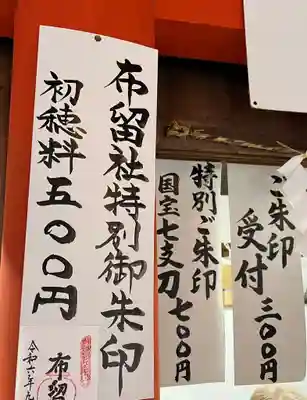 ご朱印
受付 三〇〇円
特別ご朱印
国宝七支刀 七〇〇円
布留社特別御朱印
初穂料五〇〇円
布留
令和六年九